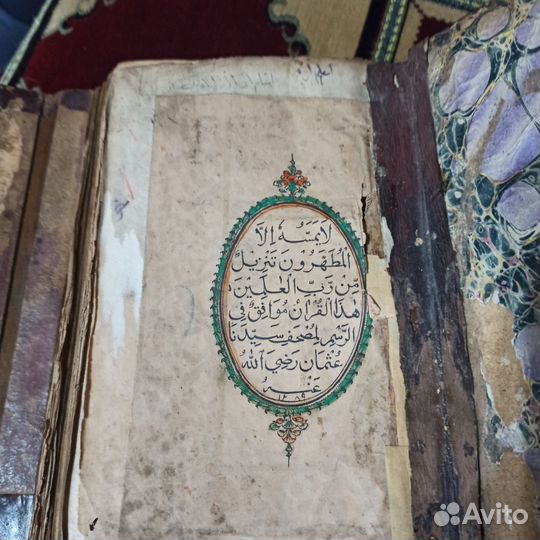 لَا يَمَسُّهُ إِلَّا
المُطَهَّرُونَ تَنْزِيلٌ
مِنْ رَبِّ العٰلَمِينَ
هٰذَا القُرْاٰنُ مُوَافِقٌ فِي
الرَّسْمِ لِمُصْحَفِ سَيِّدِنَا
عُثْمَانَ رَضِيَ اللهُ
عَنْهُ
١٢٥٩
Avito